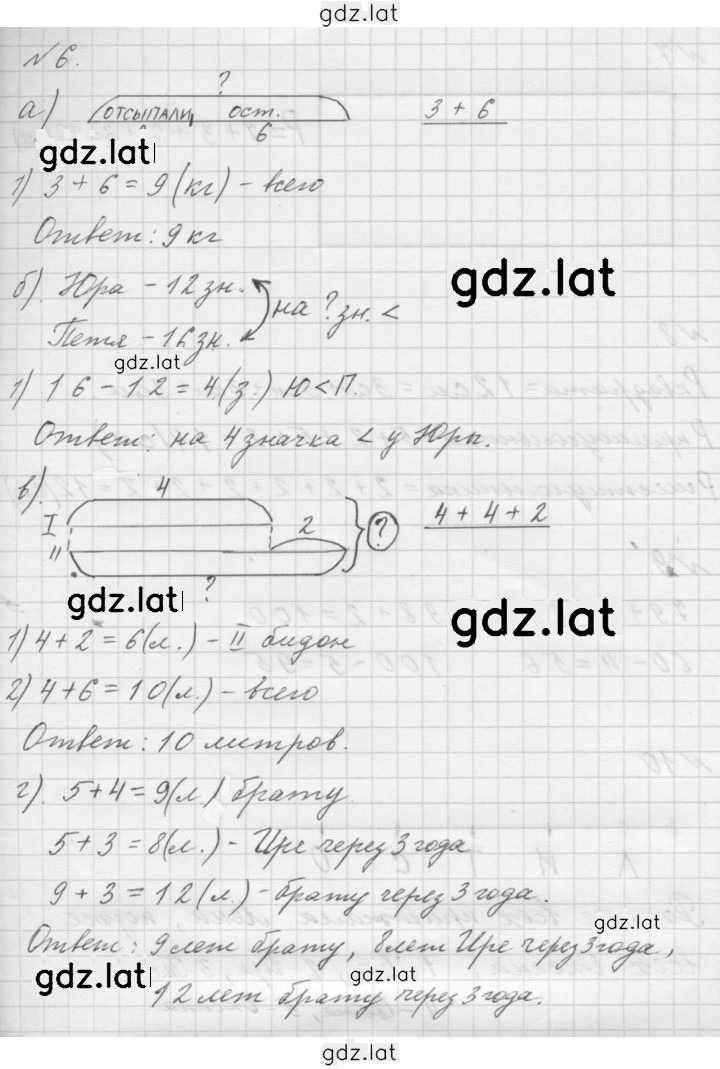 gdz.lat
№ 6.
?
а) ОТСЫПАЛИ ост. 3 + 6
6
gdz.lat
1) 3 + 6 = 9 (кг) - всего
Ответ: 9 кг
б). Юра - 12 зн.
на ? зн. <
Петя - 16 зн.
gdz.lat
gdz.lat
1) 16 - 12 = 4 (з.) Ю < П.
Ответ: на 4 значка < у Юры.
в).
4
I 2 ? 4 + 4 + 2
II
?
gdz.lat
gdz.lat
1) 4 + 2 = 6 (л.) - II бидон
2) 4 + 6 = 10 (л.) - всего
Ответ: 10 литров.
г). 5 + 4 = 9 (л.) брату
5 + 3 = 8 (л.) - Ире через 3 года
9 + 3 = 12 (л.) - брату через 3 года.
gdz.lat
Ответ: 9 лет брату, 8 лет Ире через 3 года,
gdz.lat
gdz.lat
12 лет брату через 3 года.
gdz.lat